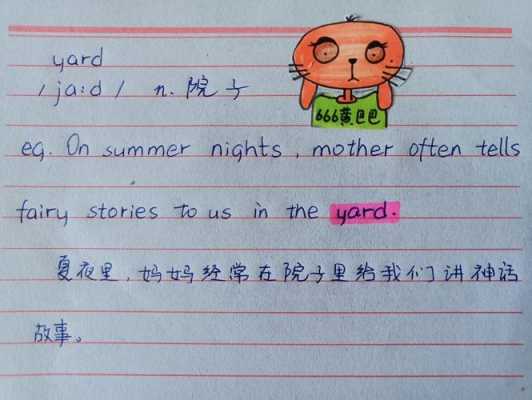 yard
/ja:d/ n. 院子
666黄巴巴
eg. On summer nights, mother often tells
fairy stories to us in the yard.
夏夜里，妈妈经常在院子里给我们讲神话
故事。